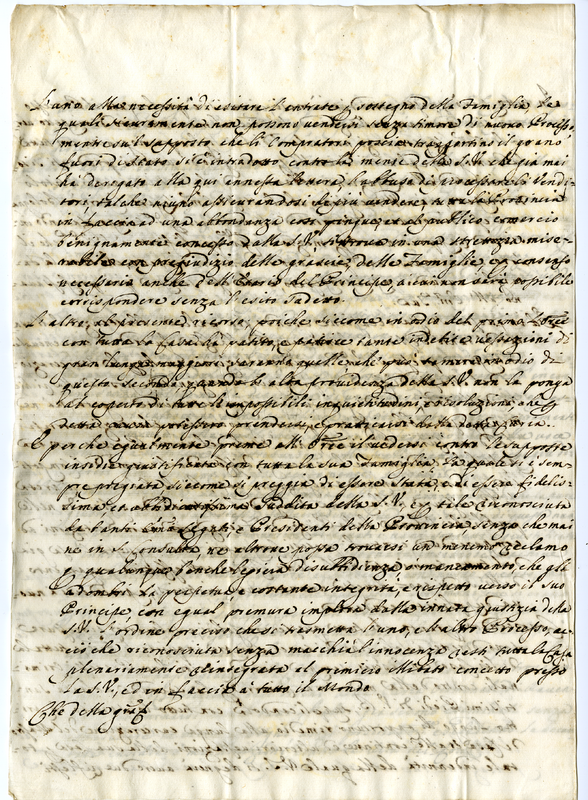 L'una alla necessità di esitare l'entrate p sostegno della Famiglia le
quali sicuramente non possono vendersi senza timore di nuovo Processo,
mentre sul supposto che li Compratori possin trasportino il grano
fuori di Stato si è introdotto contro la mente della S.V. che già mai
hà derogato alla qui annessa l'abuso di processare li Vendi-
tori, talche niuno assicurandosi di più vendere, tutta la Provincia
in faccia ad una abondanza così pingue, et al publico comercio
benignamente concesso dalla S.V. si trova in una strettezza mise-
rabile con pregiudizio delle grascie, delle Famiglie, e p consenso
necessario anche dell'Erario del Principe, a cui non sarà possibile
corrispondere senza l'esito sudetto.
L'altre al presente ricorso, poiche siccome in odio del primo
con tutta la sua Casa hà patito, e patisce tante indebite vessazioni, di
gran lunga maggiori saranno quelle, che può temere in odio di
questo secondo, quando l'alta providenza della S.V. non la ponga
al coperto di tutte le impossibili inquietudini, e rivoluzioni, che
detta potessero prendere, e praticarsi dalla detta
E perche egualmente preme all' Ore il vedersi contro le supposte
insidie giustificata con tutta la sua Famiglia, la quale si è sem-
pre pregiata siccome si preggia di essere stata, e di essere fidelis-
sima, et Suddita della S.V., e p tale riconosciuta
da tanti Legati, e Presidenti della Provincia, senza che mai
ne in Consulta ne altrove possa trovarsi un menomo reclamo
p qualunque benche leggiera disubidienza, o mancamento, che gli
adombri la perpetua, e costante integrità, e rispetto verso il suo
Principe con egual premura implora dalla innata giustizia della
S.V. l'ordine preciso che si trasmetta l'uno, e l'altro Processo, ac-
ciò che riconosciuta senza macchia l'innocenza resti tutta la Casa
pienariamente reintegrata al primiero illibato concetto presso
la S.V., ed in faccia a tutto il Mondo.
Che della